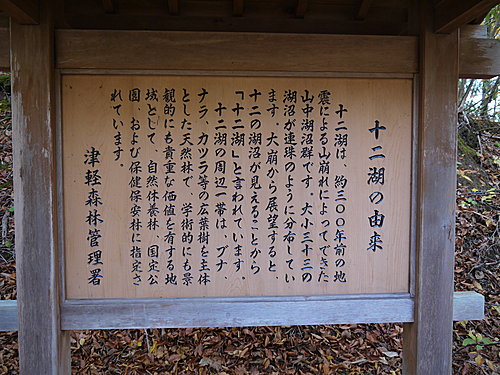 十二湖の由来
十二湖は、約三００年前の地
震による山崩れによってできた
山中湖沼群です。大小三十三の
湖沼が連珠のように分布してい
ます。大崩から展望すると、
十二の湖沼が見えることから
「十二湖」と言われています。
十二湖の周辺一帯は、ブナ
ナラ、カツラ等の広葉樹を主体
とした天然林で、学術的にも景
観的にも貴重な価値を有する地
域として、自然休養林、国定公
園、および保健保安林に指定さ
れています。
津軽森林管理署